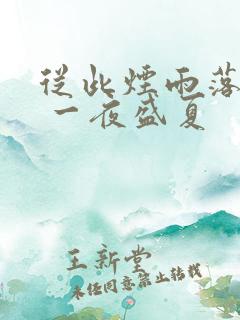 從此煙雨落
一夜盛夏
王新堂
未经同意禁止转载